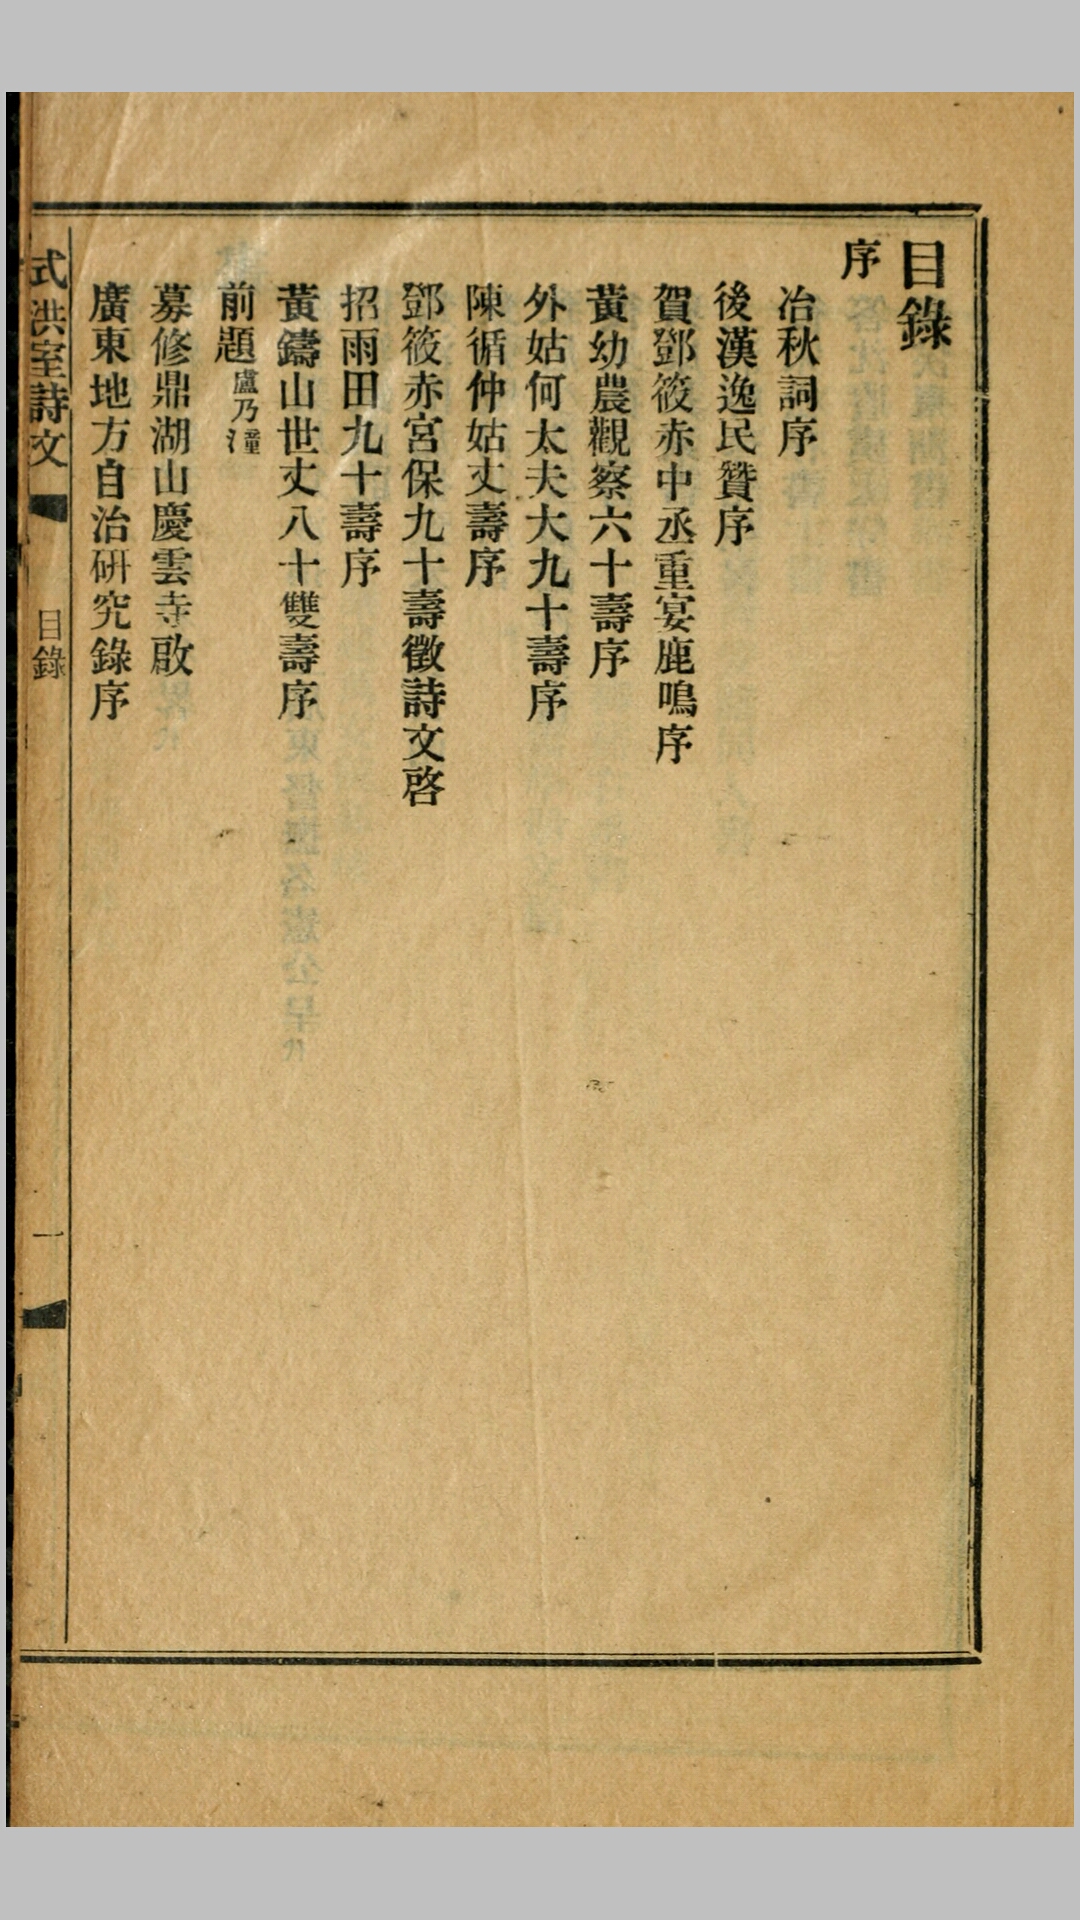 目錄
序
冶秋詞序
後漢逸民贊序
賀鄧筱赤中丞重宴鹿鳴序
黃幼農觀察六十壽序
外姑何太夫大九十壽序
陳循仲姑丈壽序
鄧筱赤宮保九十壽徵詩文啓
招雨田九十壽序
黃鑄山世丈八十雙壽序
前題盧乃潼
募修鼎湖山慶雲寺啟
廣東地方自治研究錄序
式洪室詩文 目錄 一